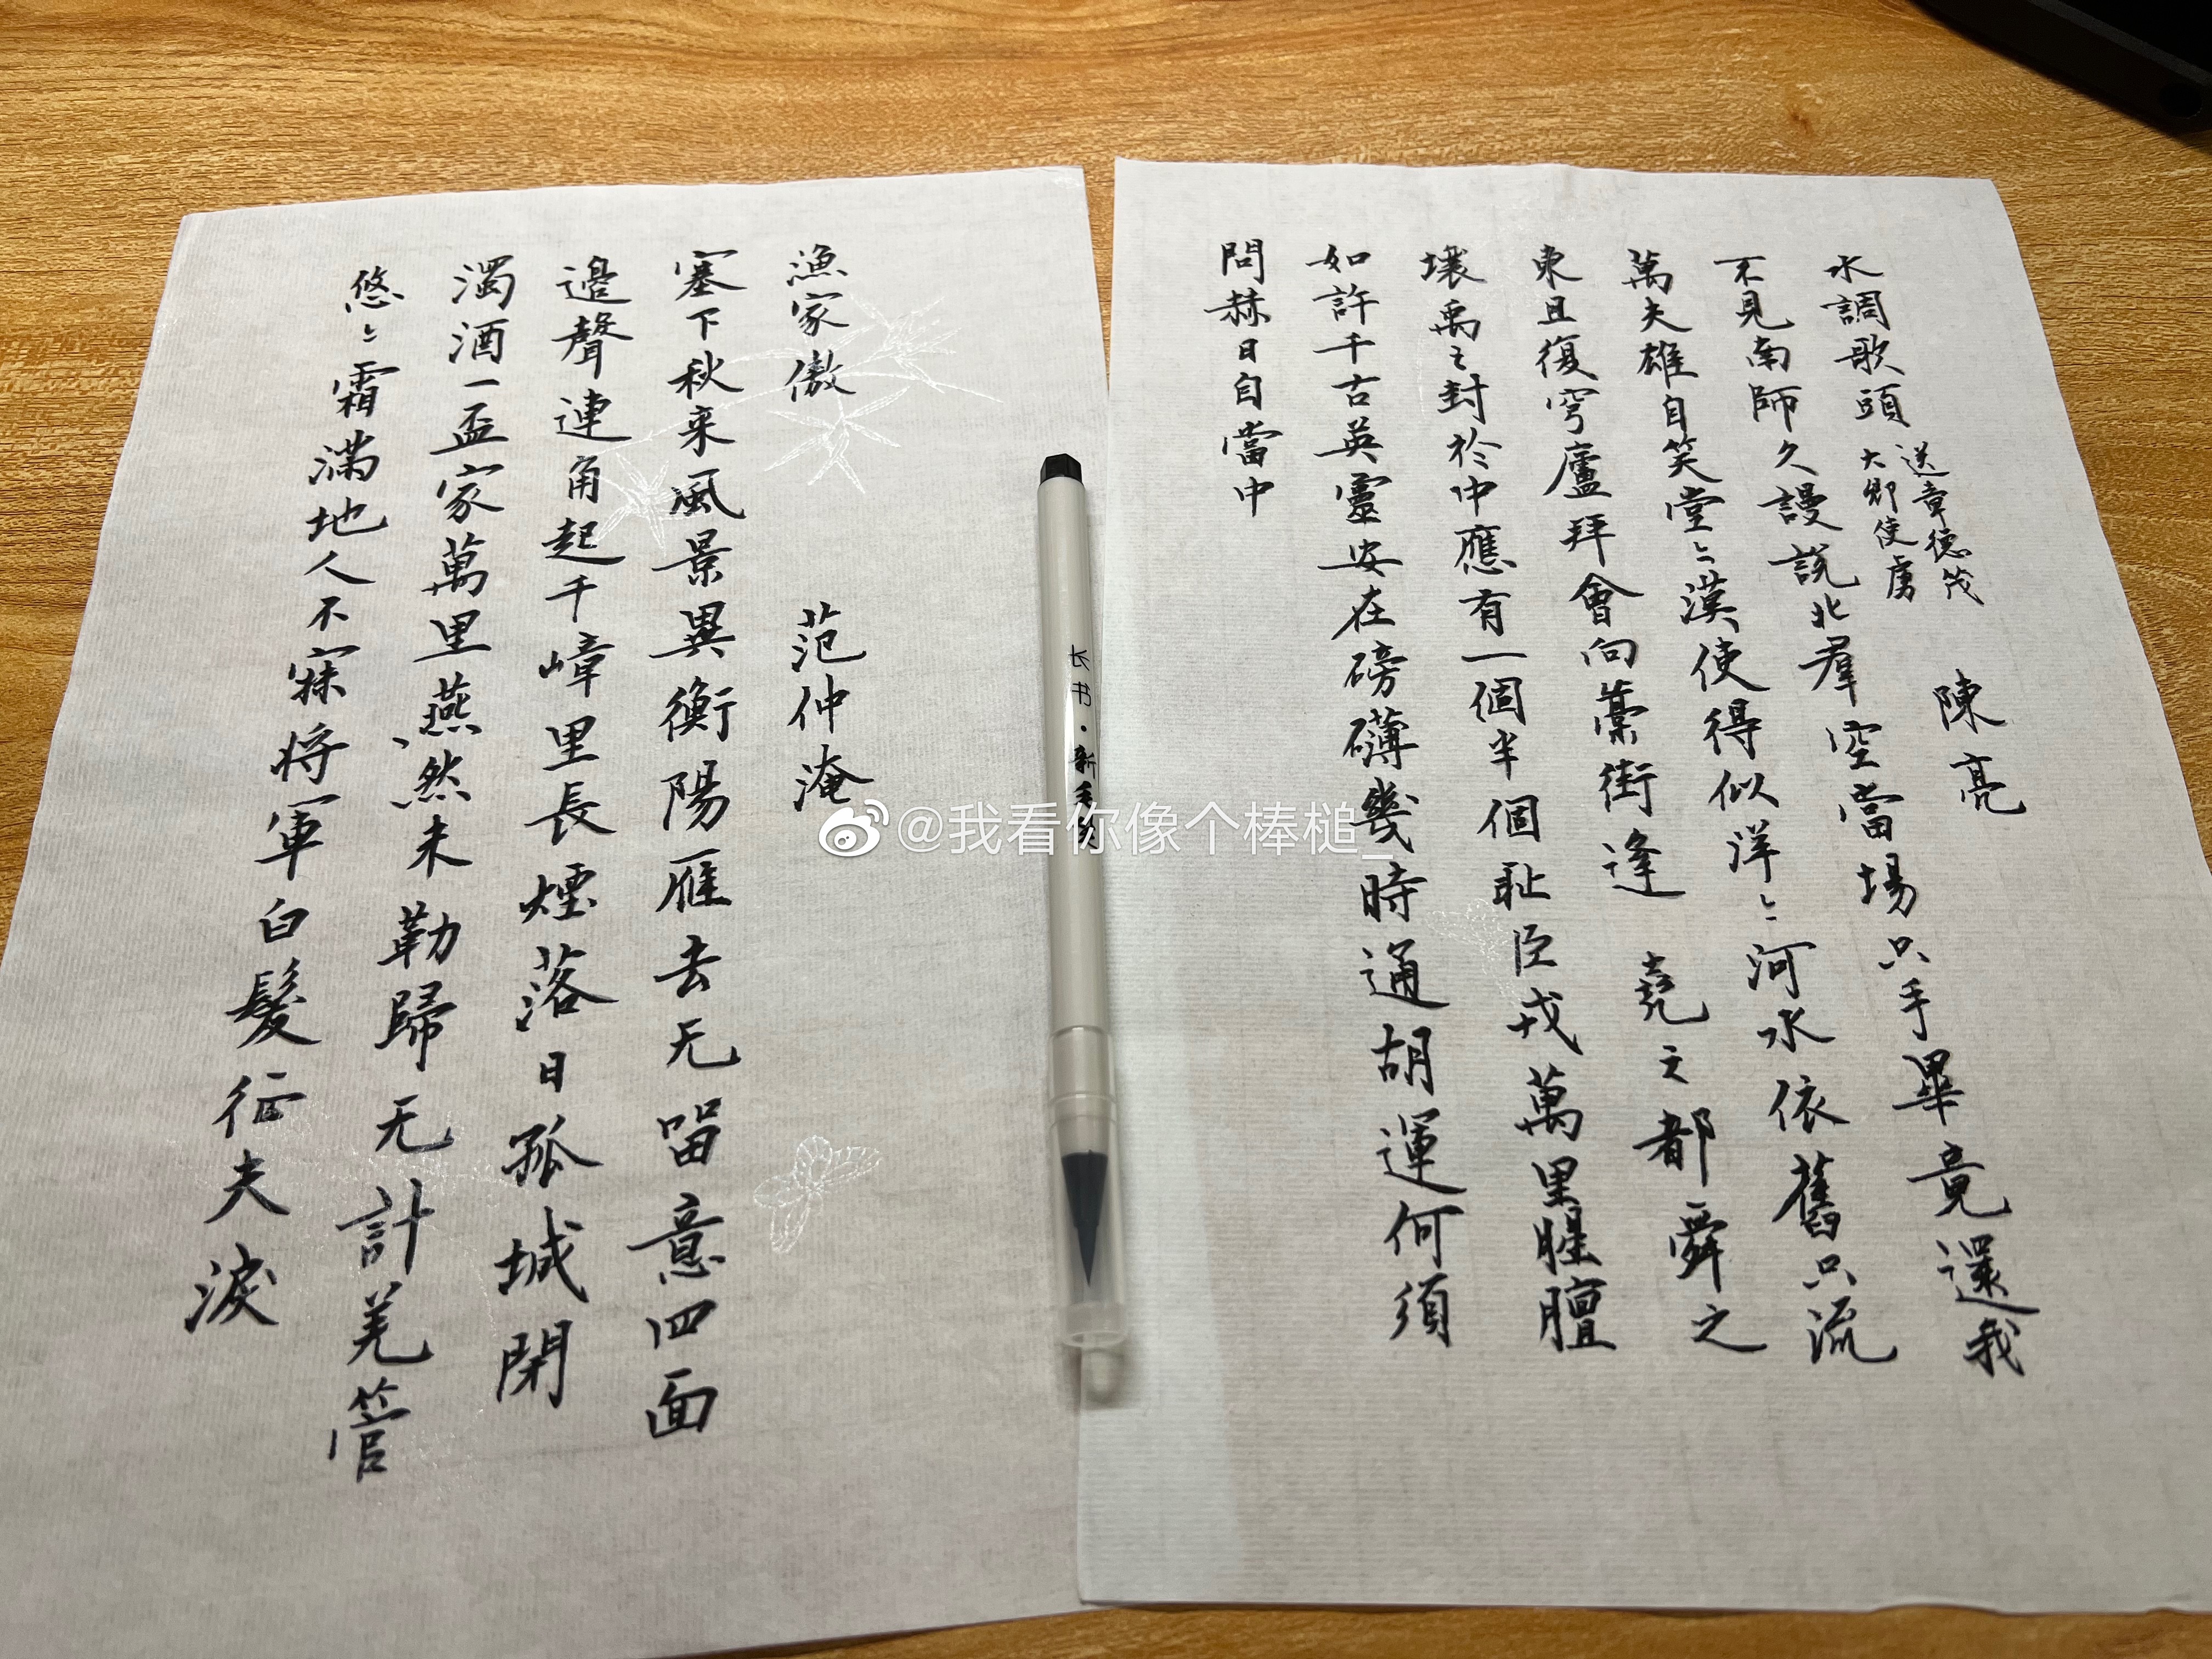 水調歌頭 送章德茂
大卿使虜 陳亮
不見南師久謾說北羣空當場只手畢竟還我
萬夫雄自笑堂〻漢使得似洋〻河水依舊只流
東且復穹廬拜會向藁街逢 堯之都舜之
壤禹之封於中應有一個半個耻臣戎萬里腥膻
如許千古英靈安在磅礴幾時通胡運何須
問赫日自當中
漁家傲 范仲淹
塞下秋来風景異衡陽雁去无留意四面
邉聲連角起千嶂里長煙落日孤城閉
濁酒一盃家萬里燕然未勒歸无計羌管
悠〻霜滿地人不寐将軍白髮征夫淚
长书·新毛笔
@我看你像个棒槌_